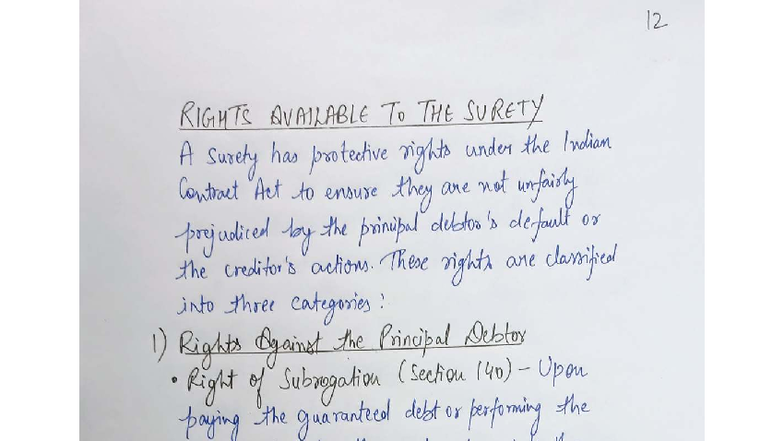 12
RIGHTS AVAILABLE TO THE SURETY
A Surety has protective rights under the Indian
Contract Act to ensure they are not unfairly
prejudiced by the principal debtor's default or
the creditor's actions. These rights are classified
into three categories :
1) Rights Against the Principal Debtor
• Right of Subrogation (Section 140) – Upon
paying the guaranteed debt or performing the